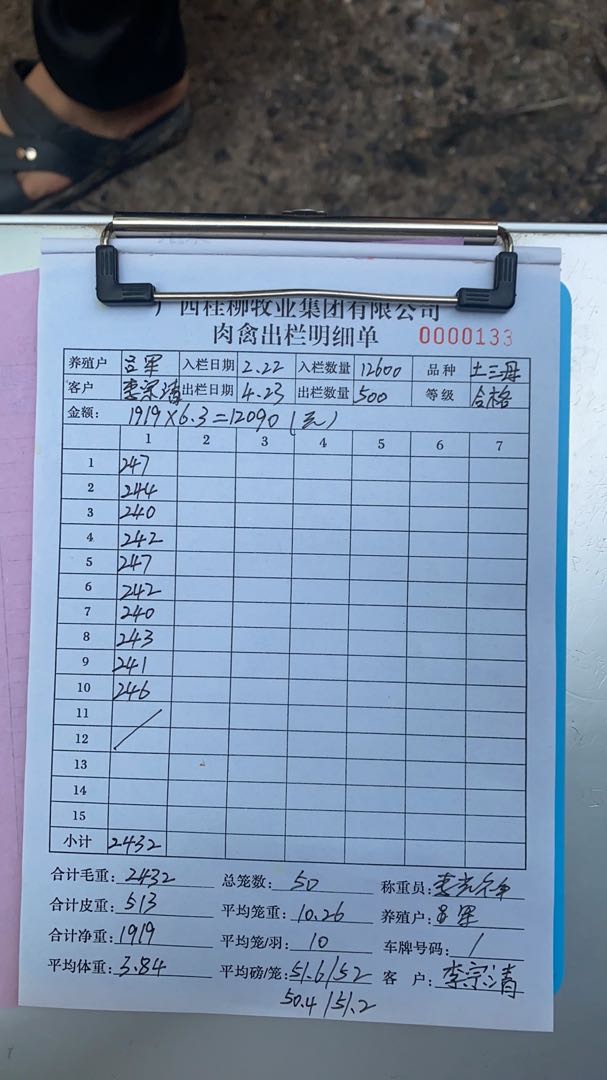 广西桂柳牧业集团有限公司
肉禽出栏明细单 0000133
养殖户 吕军 入栏日期 2.22 入栏数量 12600 品种 土三丹
客户 李宗清 出栏日期 4.23 出栏数量 500 等级 合格
金额: 1919×6.3=12090(元)
1 2 3 4 5 6 7
1 247
2 244
3 240
4 242
5 247
6 242
7 240
8 243
9 241
10 246
11
12
13
14
15
小计 2432
合计毛重: 2432 总笼数: 50 称重员:
合计皮重: 513 平均笼重: 10.26 养殖户: 吕军
合计净重: 1919 平均笼/羽: 10 车牌号码: /
平均体重: 3.84 平均磅/笼: 51.6/52 客 户: 李宗清
50.4/51.2